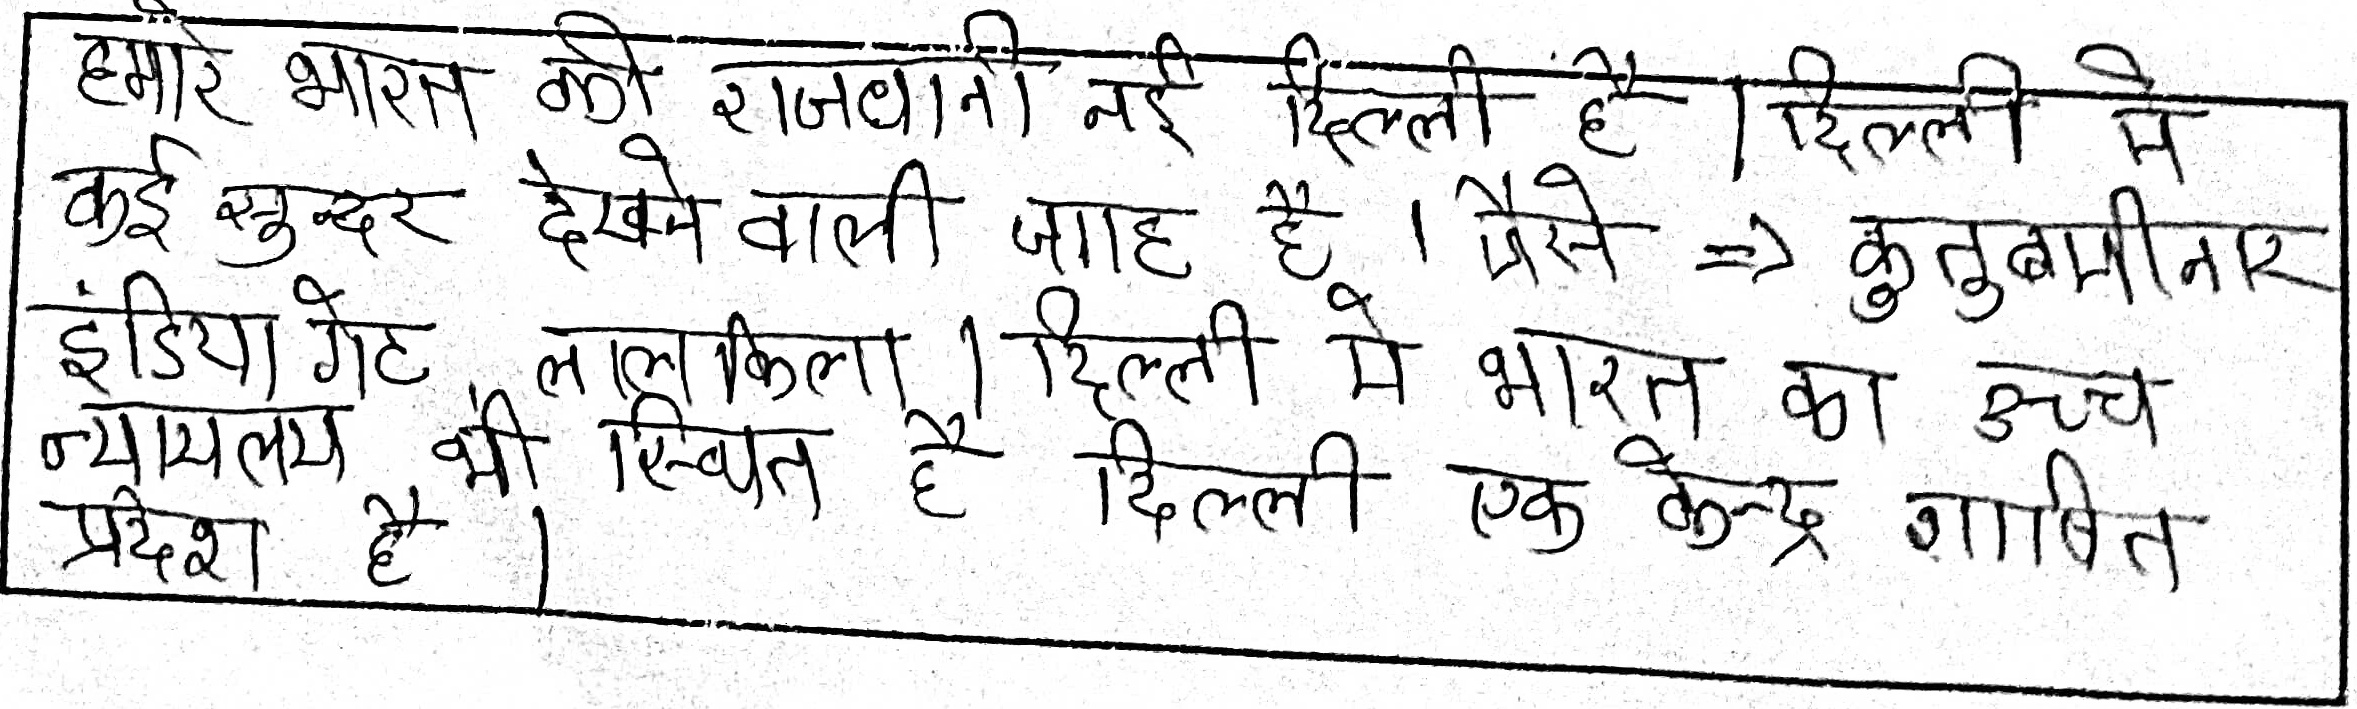 हमारे भारत की राजधानी नई दिल्ली है । दिल्ली मे
कई सुन्दर देखने वाली जगह है । जैसे => कुतुबमीनार
इंडिया गेट, लाल किला । दिल्ली मे भारत का उच्च
न्यायलय भी स्थित है दिल्ली एक केन्द्र शाषित
प्रदेश है ।